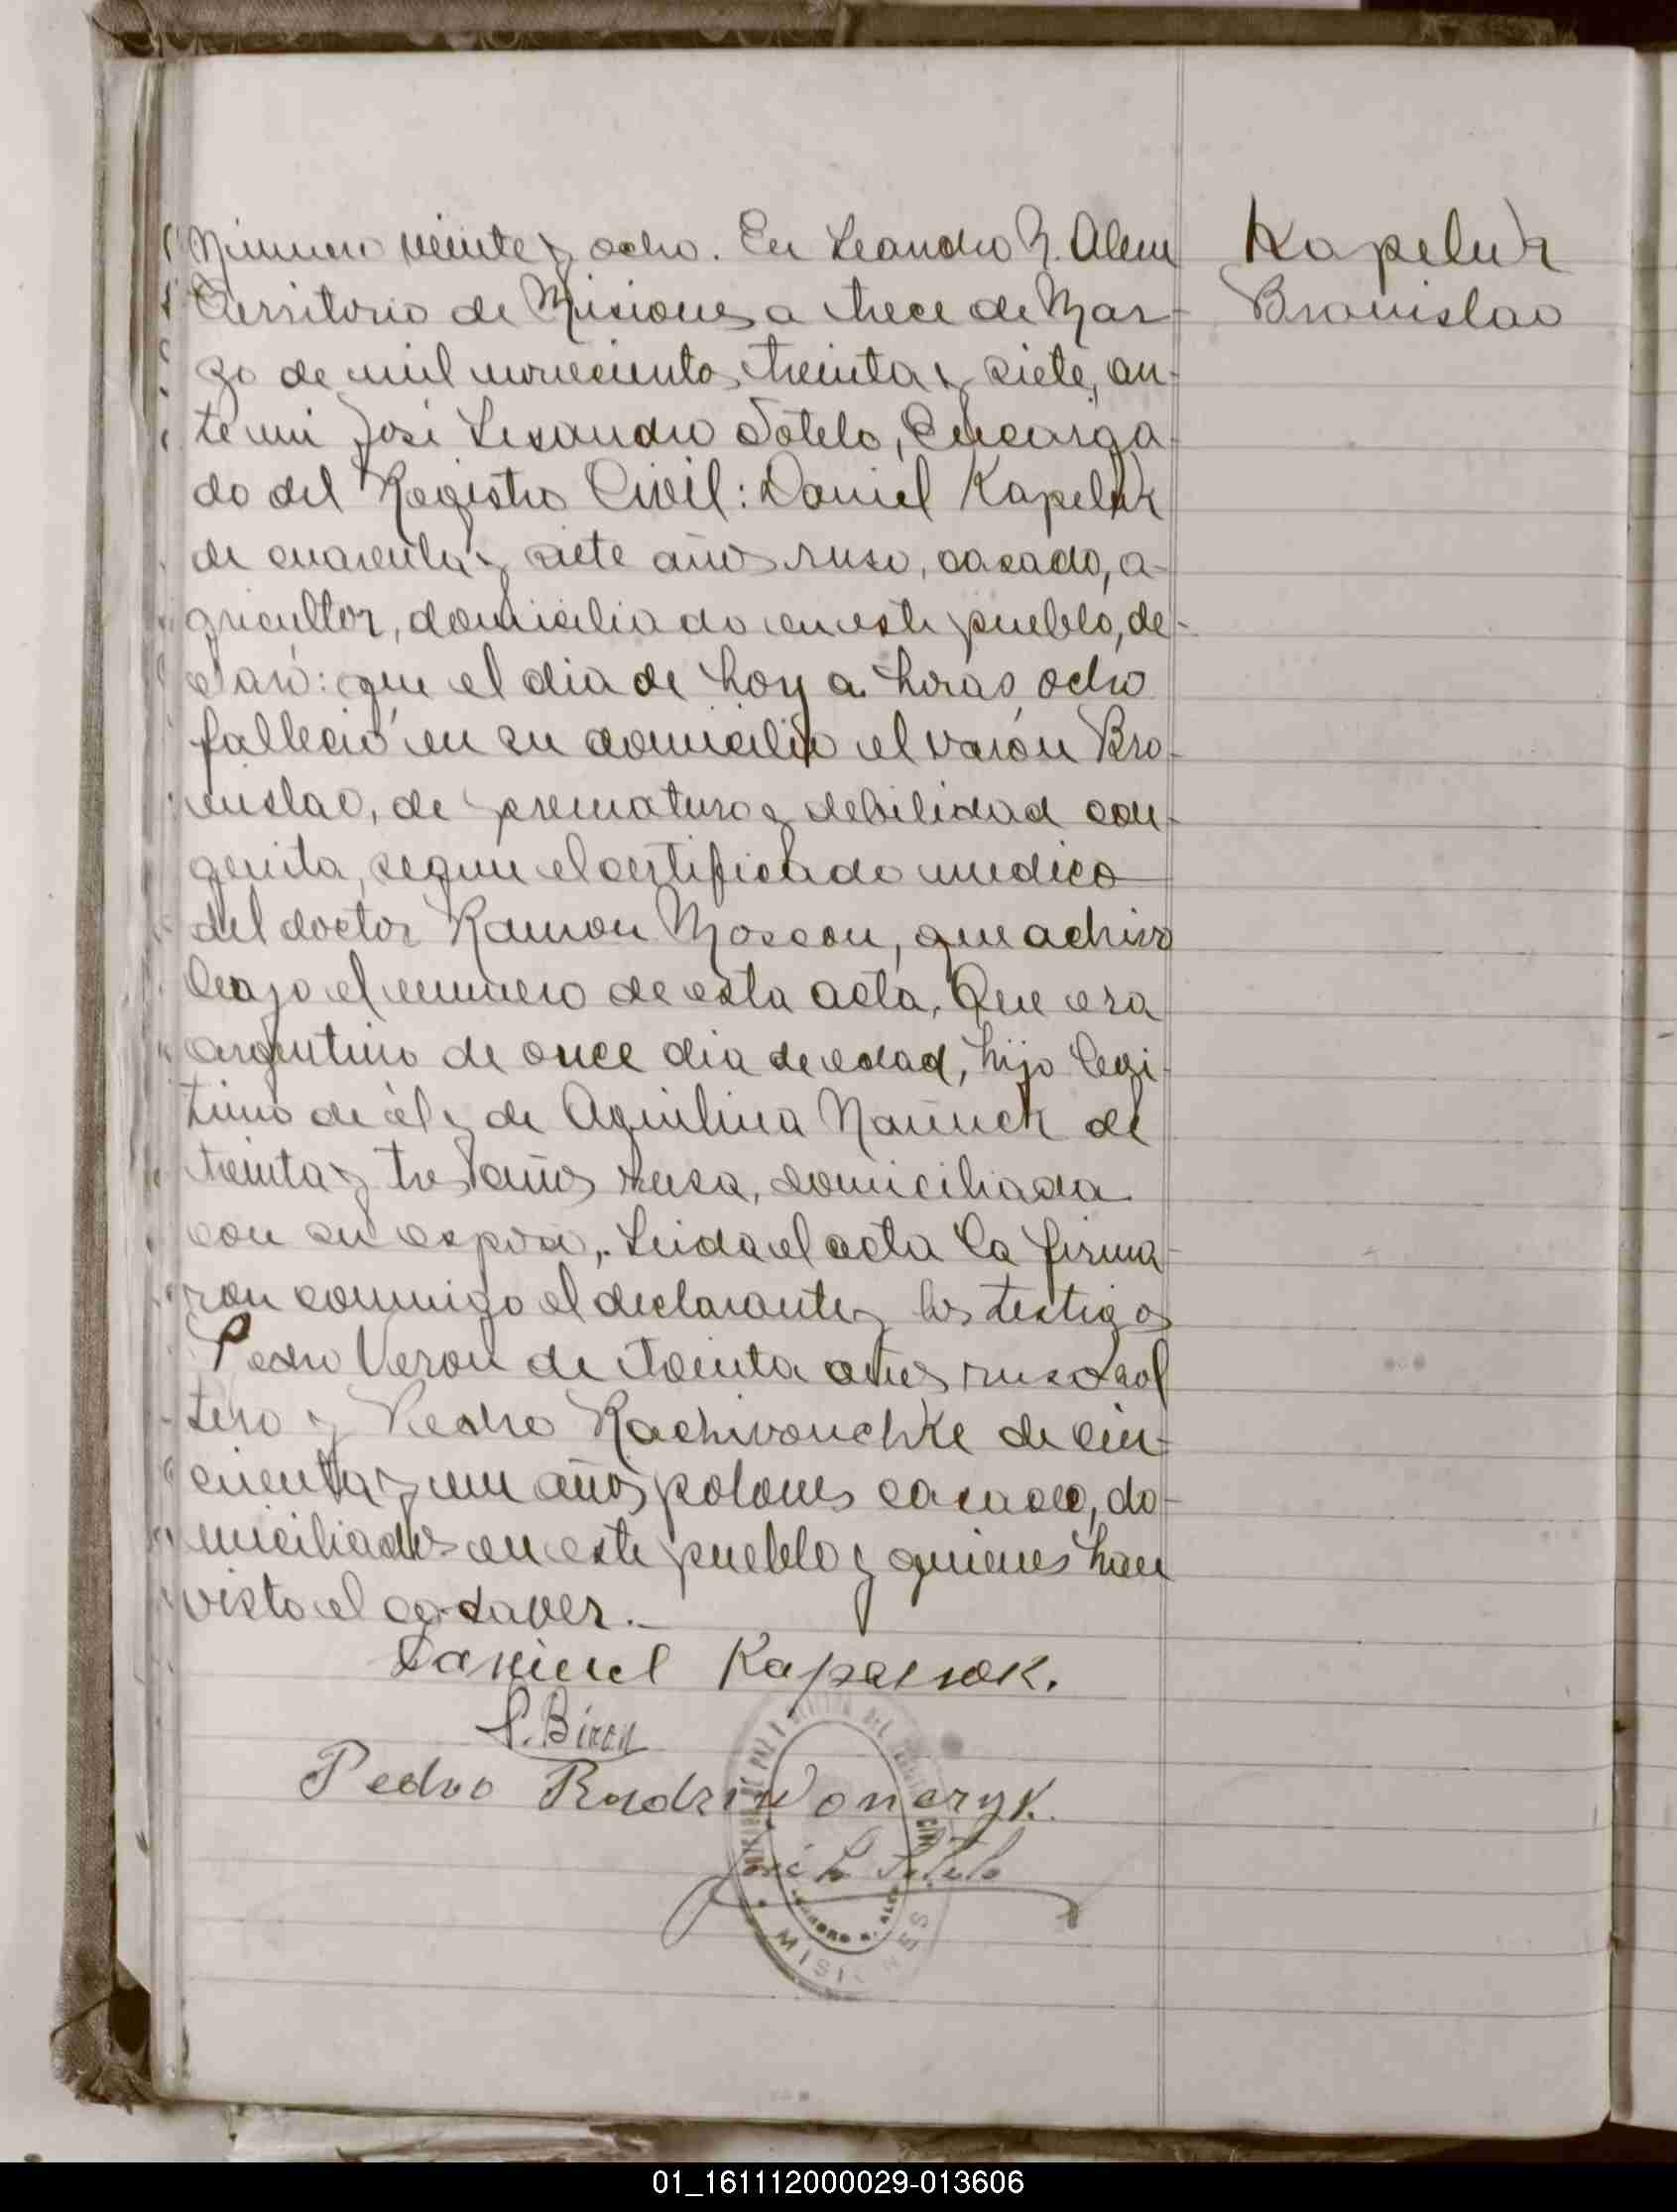 Número veinte y ocho. En Leandro N. Alem
Territorio de Misiones a trece de Mar-
zo de mil novecientos treinta y siete, an-
te mi José Lisandro Sotelo, Encarga-
do del Registro Civil: Daniel Kapeluk
de cuarenta y siete años ruso, casado, a-
gricultor, domiciliado en este pueblo, de-
claró: que el dia de hoy a horas ocho
falleció en su domicilio el varón Bro-
nislao, de prematuro y debilidad con-
genita, segun el certificado medico
del doctor Ramon Moscou, que achivo
bajo el numero de esta acta. Que era
argentino de once dia de edad, hijo legi-
timo de él y de Aquilina de
treinta y tres años rusa, domiciliada
con su esposo,. Leida el acta la firma-
ron conmigo el declarante y los testigos
Pedro Veron de treinta años ruso sol
tero y Pedro Rachivouchke de cin-
cuenta y un años polones casado, do-
miciliados en este pueblo y quienes han
visto el cadaver.
Kapeluk
Bronislao
Daniel Kapeluk.
P. Biren
Pedro Radziwonczyk.
José L. Sotelo
MISIONES
01_161112000029-013606